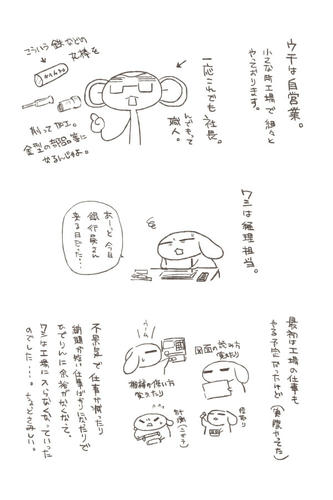 ウチは自営業。
小さな町工場で細々と
やっております。
一応これでも社長。
んでもって
職人。
こういう鉄などの
丸棒を
削って加工。
金型の部品等に
なるんじゃよ。
ワシは経理担当。
あーっと今日
銀行員さん
来る日だった…
最初は工場の仕事も
やる予定だったけど
(実際やってた)
図面の読み方
覚えたり
機械の使い方
覚えたり
段取り
不景気で仕事が減ったり
納期が短い仕事ばかりになったりで
ひでりんに余裕がなくなって、
ワシは工場に入らなくなっていった
のでした…。ちょとさみしい。